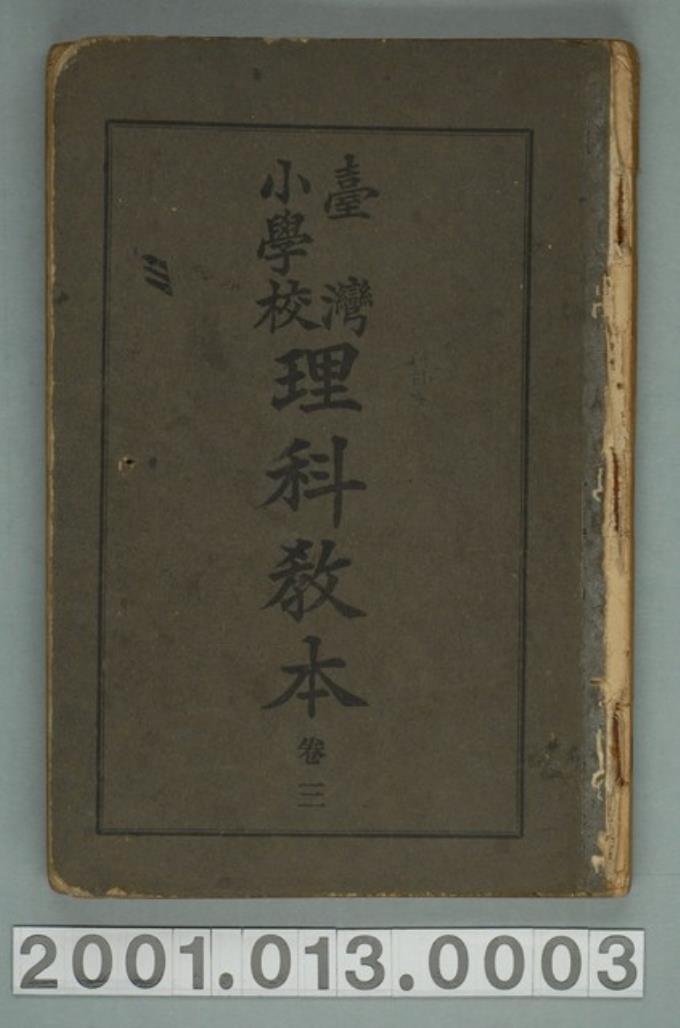 臺灣
小學校
理科教本
卷三
2001.013.0003